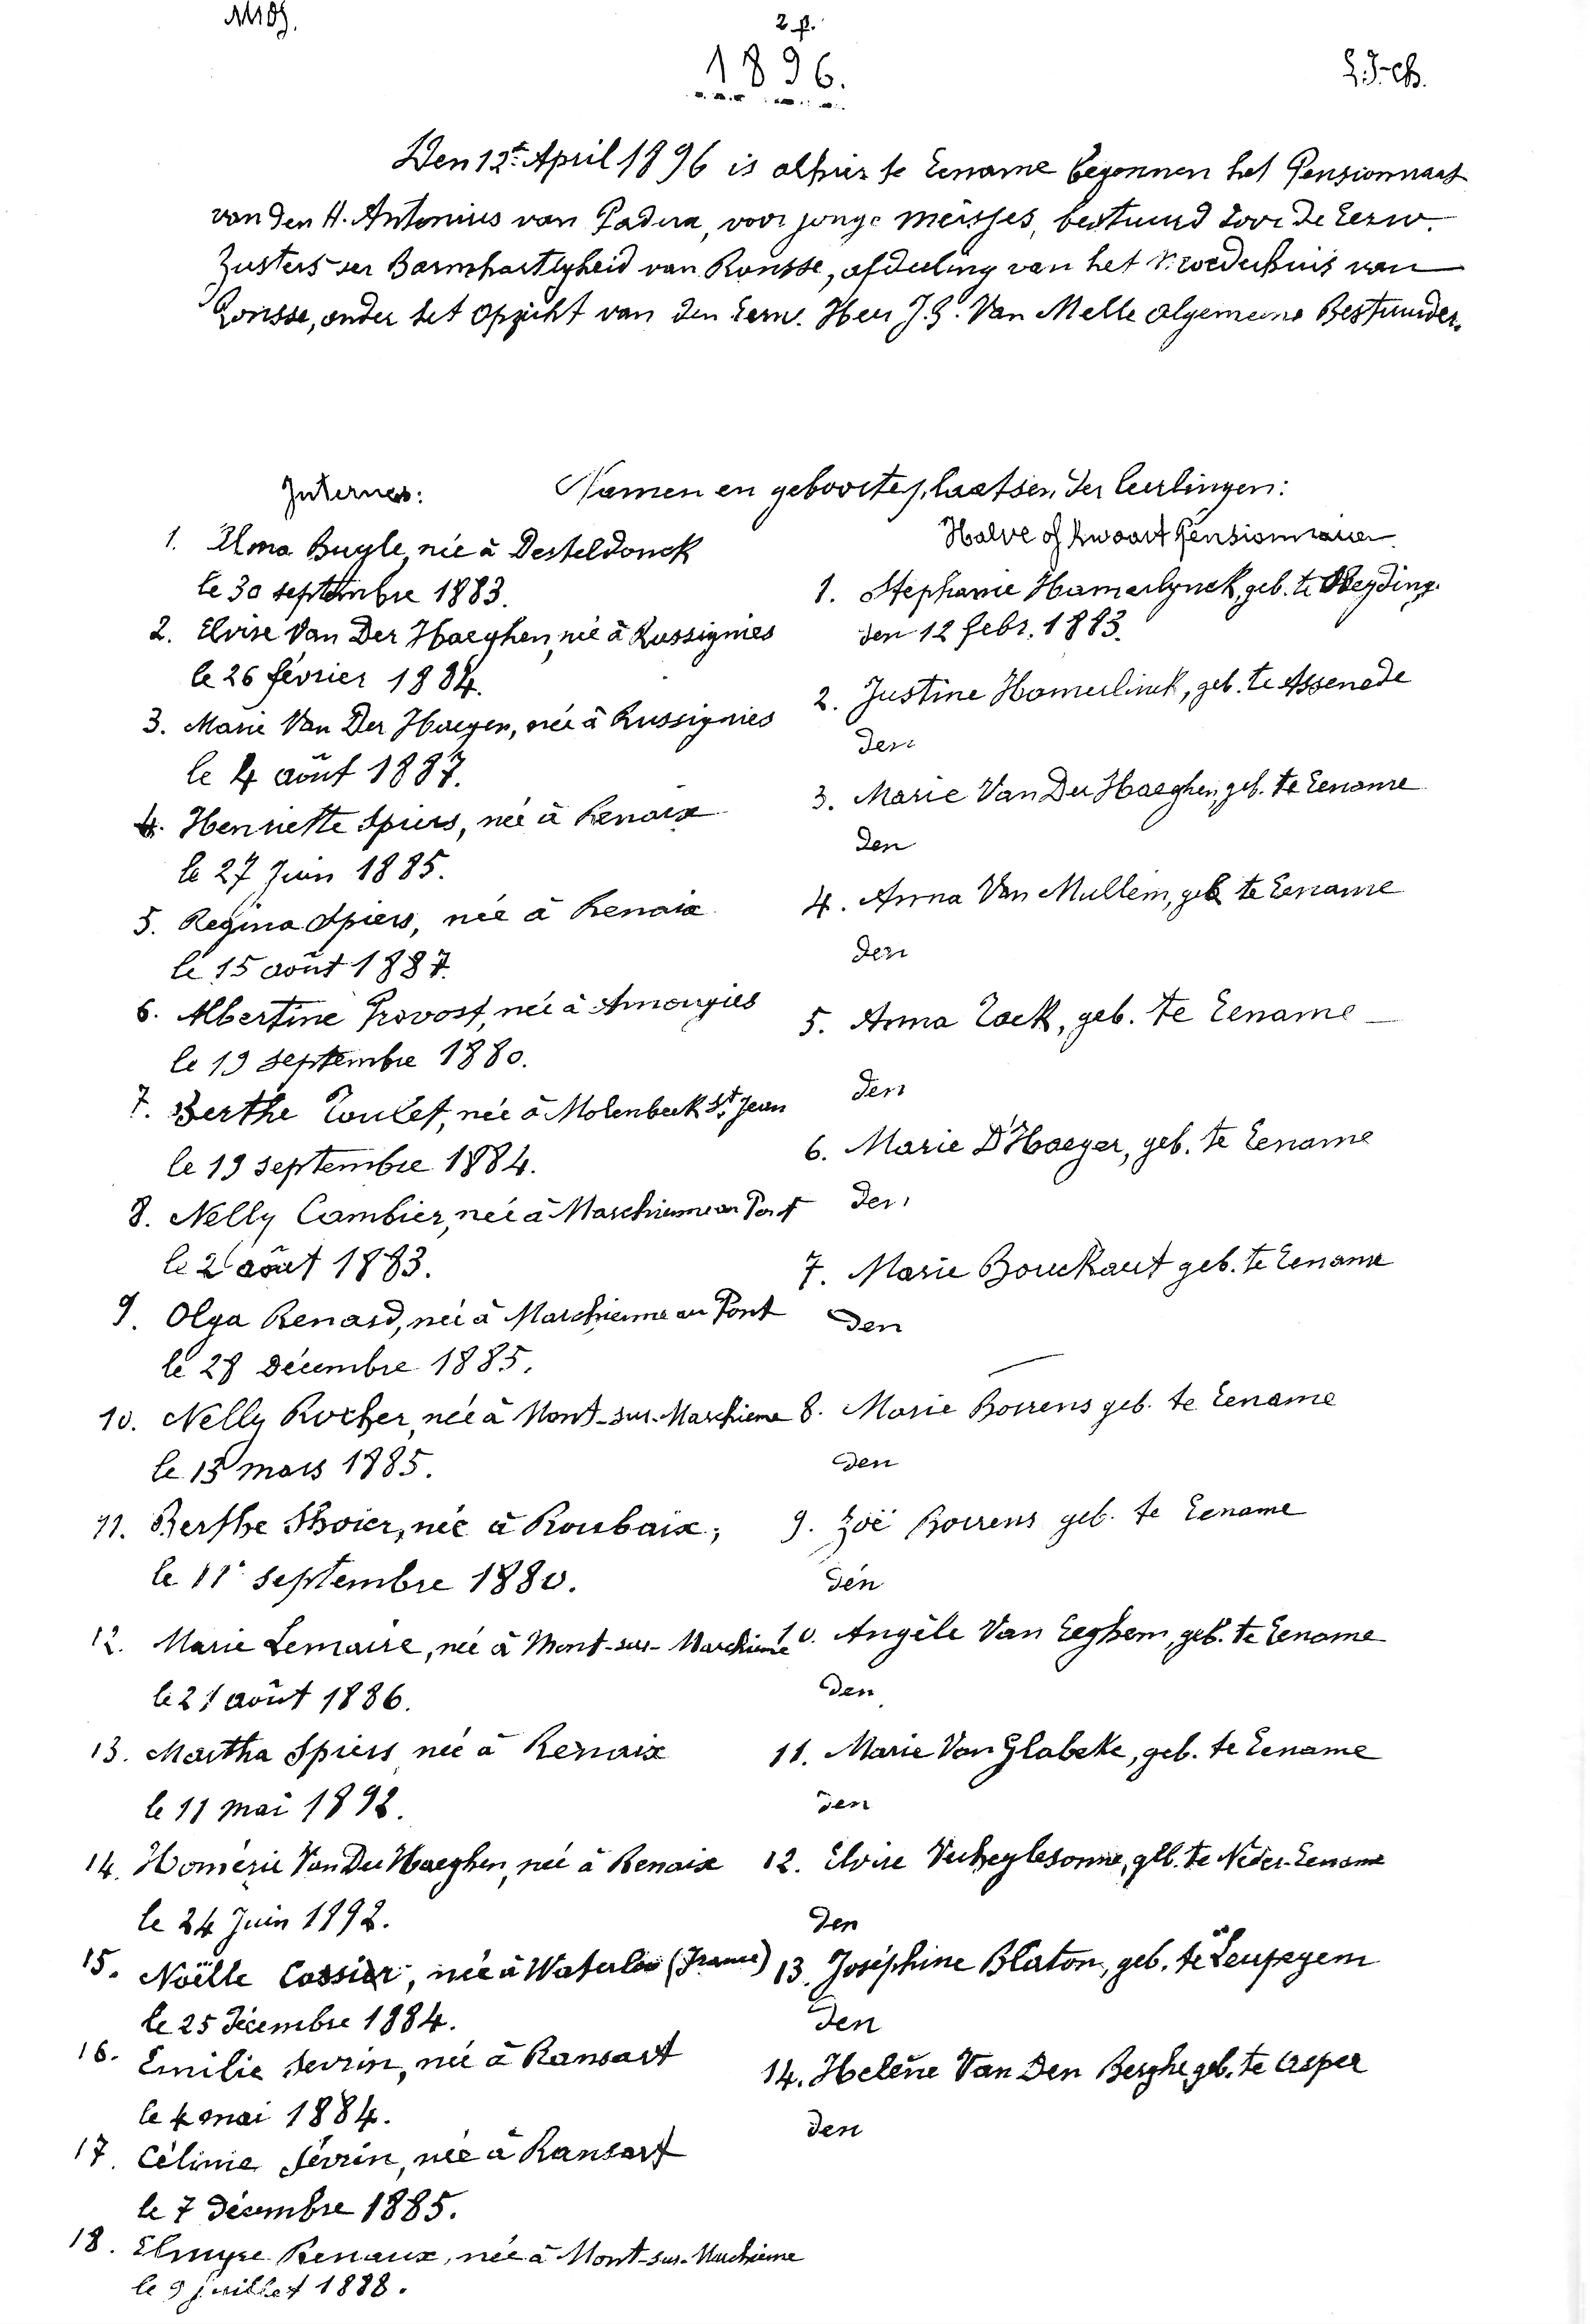 2 p.
1896.
Den 12t April 1896 is alhier te Eename begonnen het Pensionnaat
van den H. Antonius van Padua, voor jonge meisjes, bestuurd door de Eerw.
Zusters der Barmhartigheid van Ronsse, afdeeling van het Moederhuis van
Ronsse, onder het opzicht van den Eerw. Heer J.B. Van Melle algemeene Bestuurder.
Namen en geboorteplaatsen der leerlingen:
Internes:
1. Elma Buyle, née à Desteldonck
le 30 septembre 1883.
2. Elvire Van Der Haeghen, née à Russignies
le 26 février 1884.
3. Marie Van Der Haegen, née à Russignies
le 4 août 1887.
4. Henriette Spiers, née à Renaix
le 27 Juin 1885.
5. Regina Spiers, née à Renaix
le 15 août 1887.
6. Albertine Provost, née à Amougies
le 19 septembre 1880.
7. Berthe Toulet, née à Molenbeek St Jean
le 19 septembre 1884.
8. Nelly Cambier, née à Marchienne au Pont
le 2 août 1883.
9. Olga Renard, née à Marchienne au Pont
le 28 décembre 1885.
10. Nelly née à Mont-sur-Marchienne
le 15 mars 1885.
11. Berthe née à Roubaix,
le 11 septembre 1880.
12. Marie Lemaire, née à Mont-sur-Marchienne
le 21 août 1886.
13. Martha Spiers née à Renaix
le 11 mai 1892.
14. Homérie Van Der Haeghen, née à Renaix
le 24 Juin 1892.
15. Noëlle Cassier, née à Waterloo (France)
le 25 décembre 1884.
16. Emilie Sevrin, née à Ransart
le 4 mai 1884.
17. Célinie Sévrin, née à Ransart
le 7 décembre 1885.
18. Elmyre Renaux, née à Mont-sur-Marchienne
le 9 juillet 1888.
Halve of kwaart Pensionnaire
1. Stephanie Hamerlynck, geb. te
den 12 febr. 1883.
2. Justine Hamerlinck, geb. te Assenede
den
3. Marie Van Der Haeghen, geb. te Eename
den
4. Anna Van Mullem, geb te Eename
den
5. Anna Tack, geb. te Eename
den
6. Marie D'Haeyer, geb. te Eename
den
7. Marie Bouckaut geb. te Eename
den
8. Marie Borrens geb. te Eename
den
9. Zoë Borrens geb. te Eename
den
10. Angèle Van Eeghem, geb. te Eename
den
11. Marie Van Glabeke, geb. te Eename
den
12. Elvire Verheylesonne, geb. te Neder-Eename
den
13. Joséphine Blaton, geb. te Leupegem
den
14. Helène Van Den Berghe geb. te Asper
den